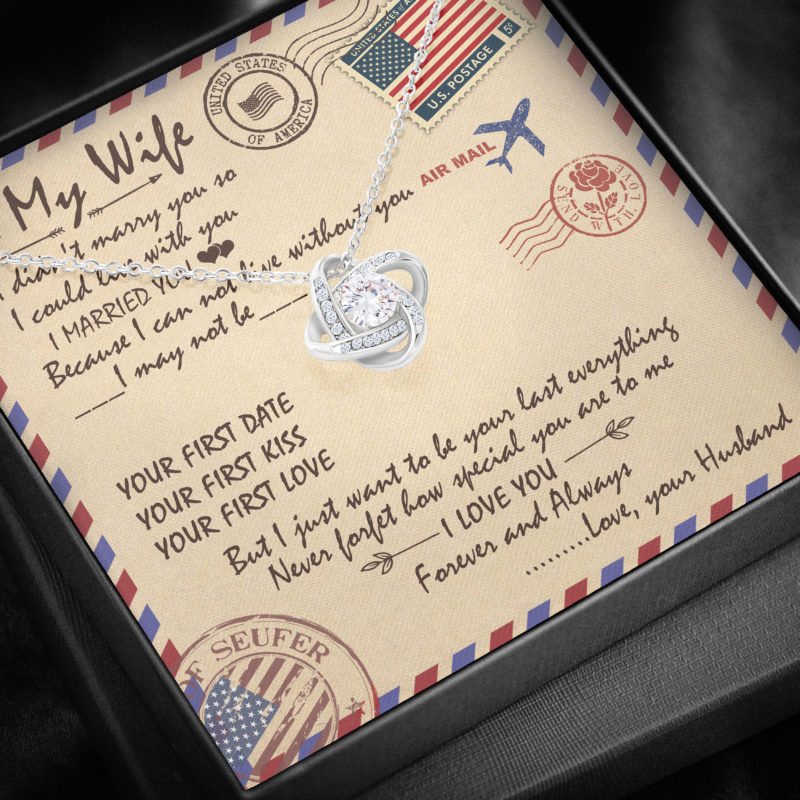 UNITED STATES OF AMERICA
UNITED STATES OF A
5¢
U.S. POSTAGE
AIR MAIL
SEND WITH LOVE
My Wife
I didn't marry you so
I could live with you
I MARRIED YOU
Because I can not live without you
I may not be
YOUR FIRST DATE
YOUR FIRST KISS
YOUR FIRST LOVE
But I just want to be your last everything
Never forfet how special you are to me
I LOVE YOU
Forever and Always
.........Love, your Husband
OF SEUFER